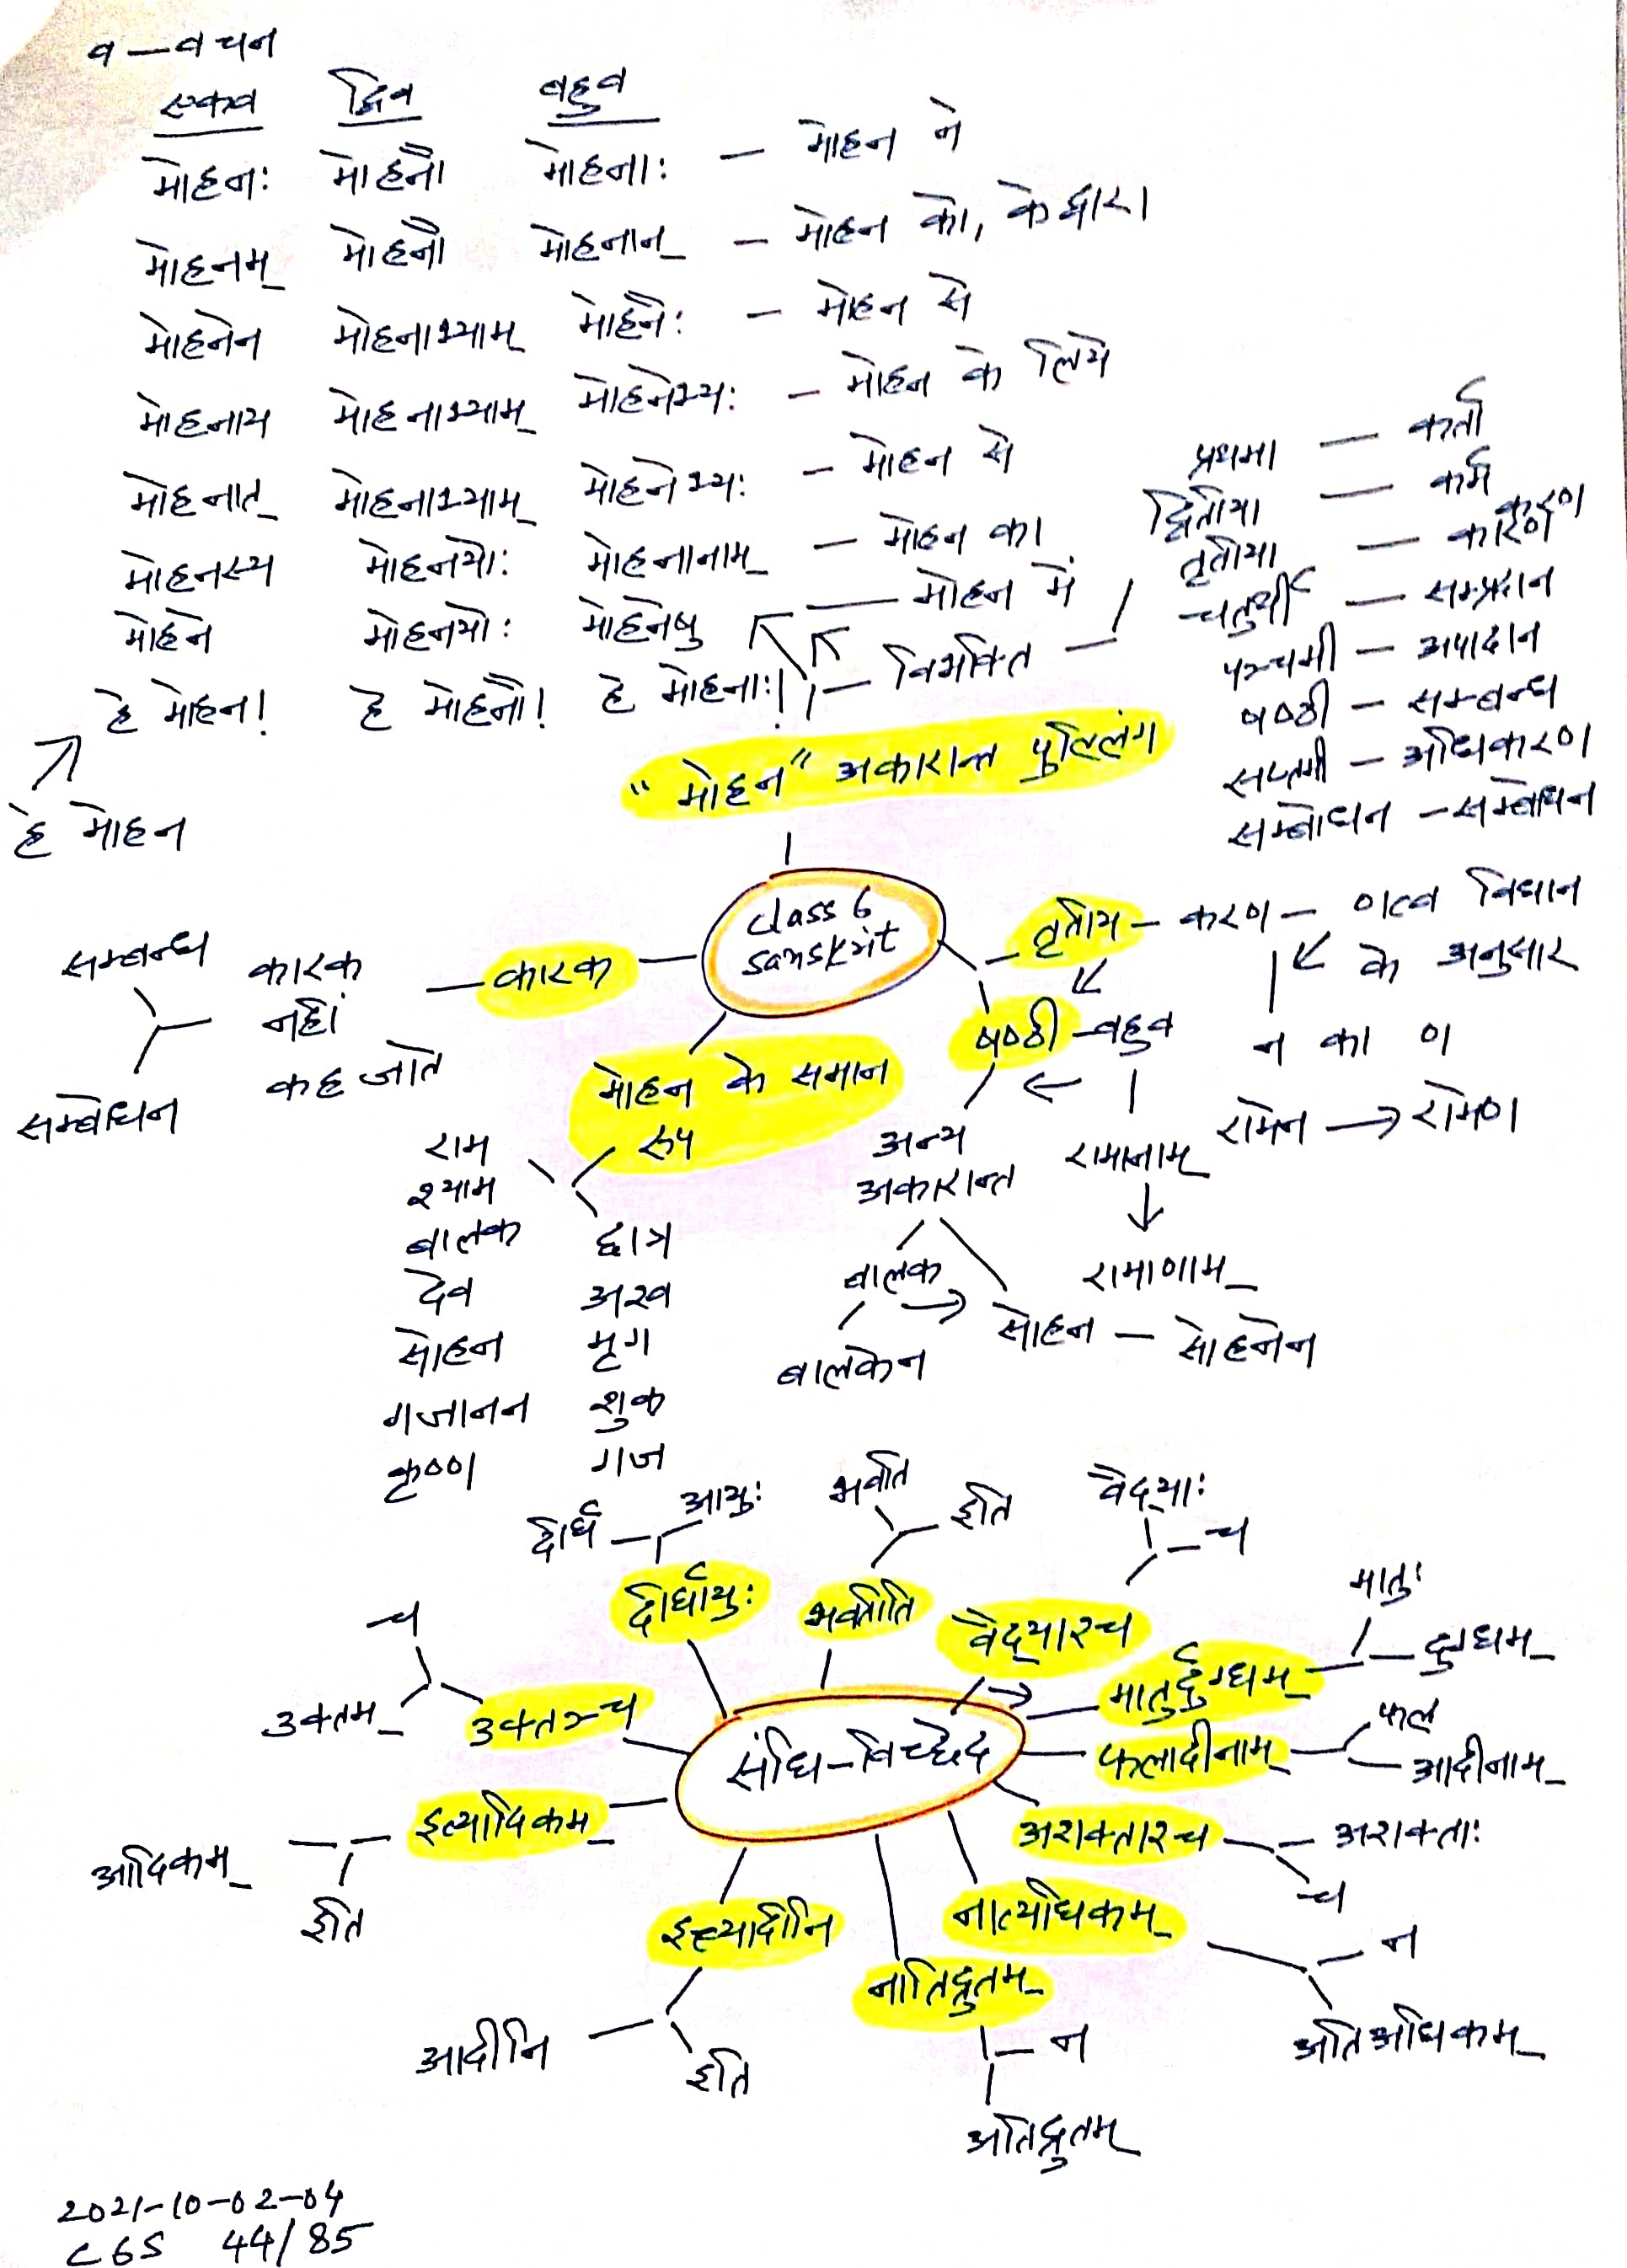 व — वचन
एकव द्विव बहुव
मोहनः मोहनौ मोहनाः — मोहन ने
मोहनम् मोहनौ मोहनान् — मोहन को, के द्वारा
मोहनेन मोहनाभ्याम् मोहनैः — मोहन से
मोहनाय मोहनाभ्याम् मोहनेभ्यः — मोहन के लिये
मोहनात् मोहनाभ्याम् मोहनेभ्यः — मोहन से
मोहनस्य मोहनयोः मोहनानाम् — मोहन का
मोहने मोहनयोः मोहनेषु — मोहन में
हे मोहन! हे मोहनौ! हे मोहनाः! — विभक्ति —
हे मोहन
प्रथमा — कर्ता
द्वितीया — कर्म
करण
तृतीया — कारण
चतुर्थी — सम्प्रदान
पञ्चमी — अपादान
षष्ठी — सम्बन्ध
सप्तमी — अधिकरण
सम्बोधन — सम्बोधन
"मोहन" अकारान्त पुल्लिंग
class 6
sanskrit
कारक
कारक
नहीं
कहे जाते
सम्बन्ध
सम्बोधन
तृतीय — करण — णत्व विधान
के अनुसार
न का ण
रामेन → रामेण
षष्ठी — बहुव
रामानाम्
रामाणाम्
अन्य
अकारान्त
बालक
बालकेन
सोहन — सोहनेन
मोहन के समान
रूप
राम
श्याम
बालक
देव
सोहन
गजानन
कृष्ण
छात्र
अश्व
मृग
शुक
गज
संधि-विच्छेद
दीर्घायुः
दीर्घ
आयुः
भवतीति
भवति
इति
वैद्याश्च
वैद्याः
च
मातुर्दुग्धम्
मातुः
दुग्धम्
फलादीनाम्
फल
आदीनाम्
अशक्ताश्च
अशक्ताः
च
नात्यधिकम्
न
अतिअधिकम्
नातिद्रुतम्
न
अतिद्रुतम्
इत्यादीनि
आदीनि
इति
इत्यादिकम्
आदिकम्
इति
उक्तञ्च
च
उक्तम्
2021-10-02-04
C6S 44/85